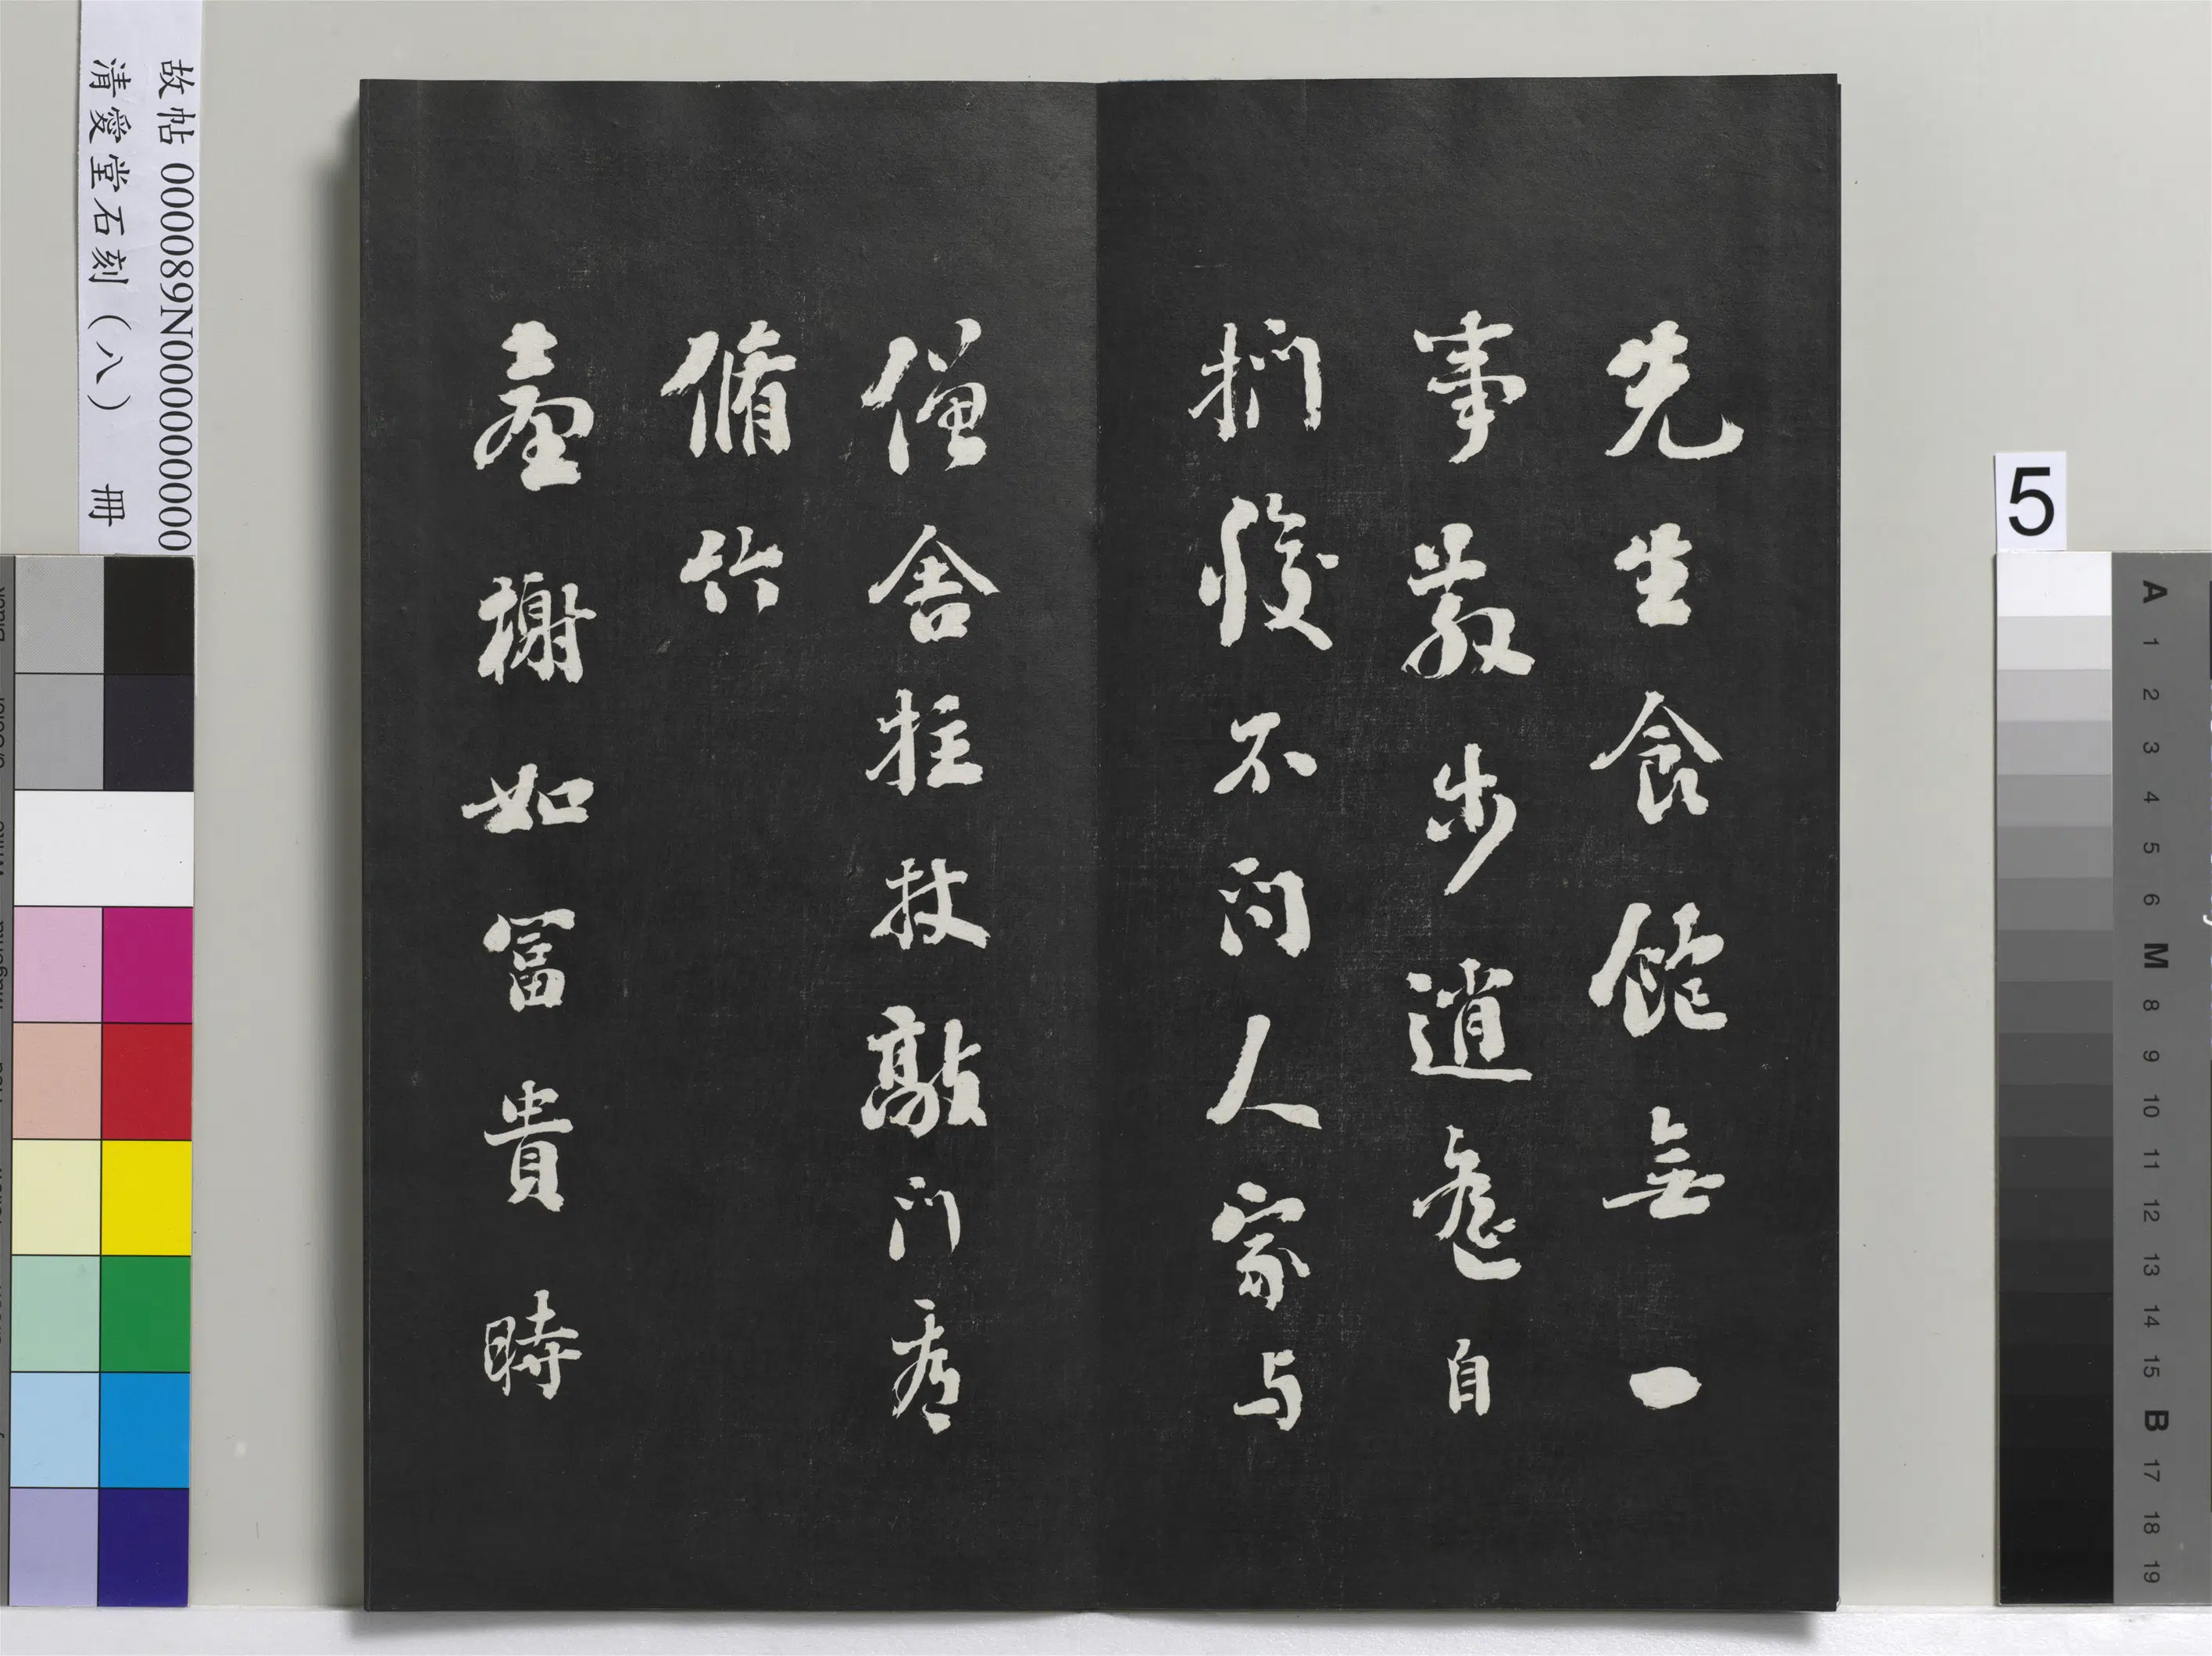 先生食飽無一
事散步逍遙自
捫腹不问人家与
僧舍拄杖敲门看
脩竹
臺榭如富貴時
故帖 000089N000000000
清愛堂石刻(八) 冊
5
A
1
2
3
4
5
6
M
8
9
10
11
12
13
14
15
B
17
18
19